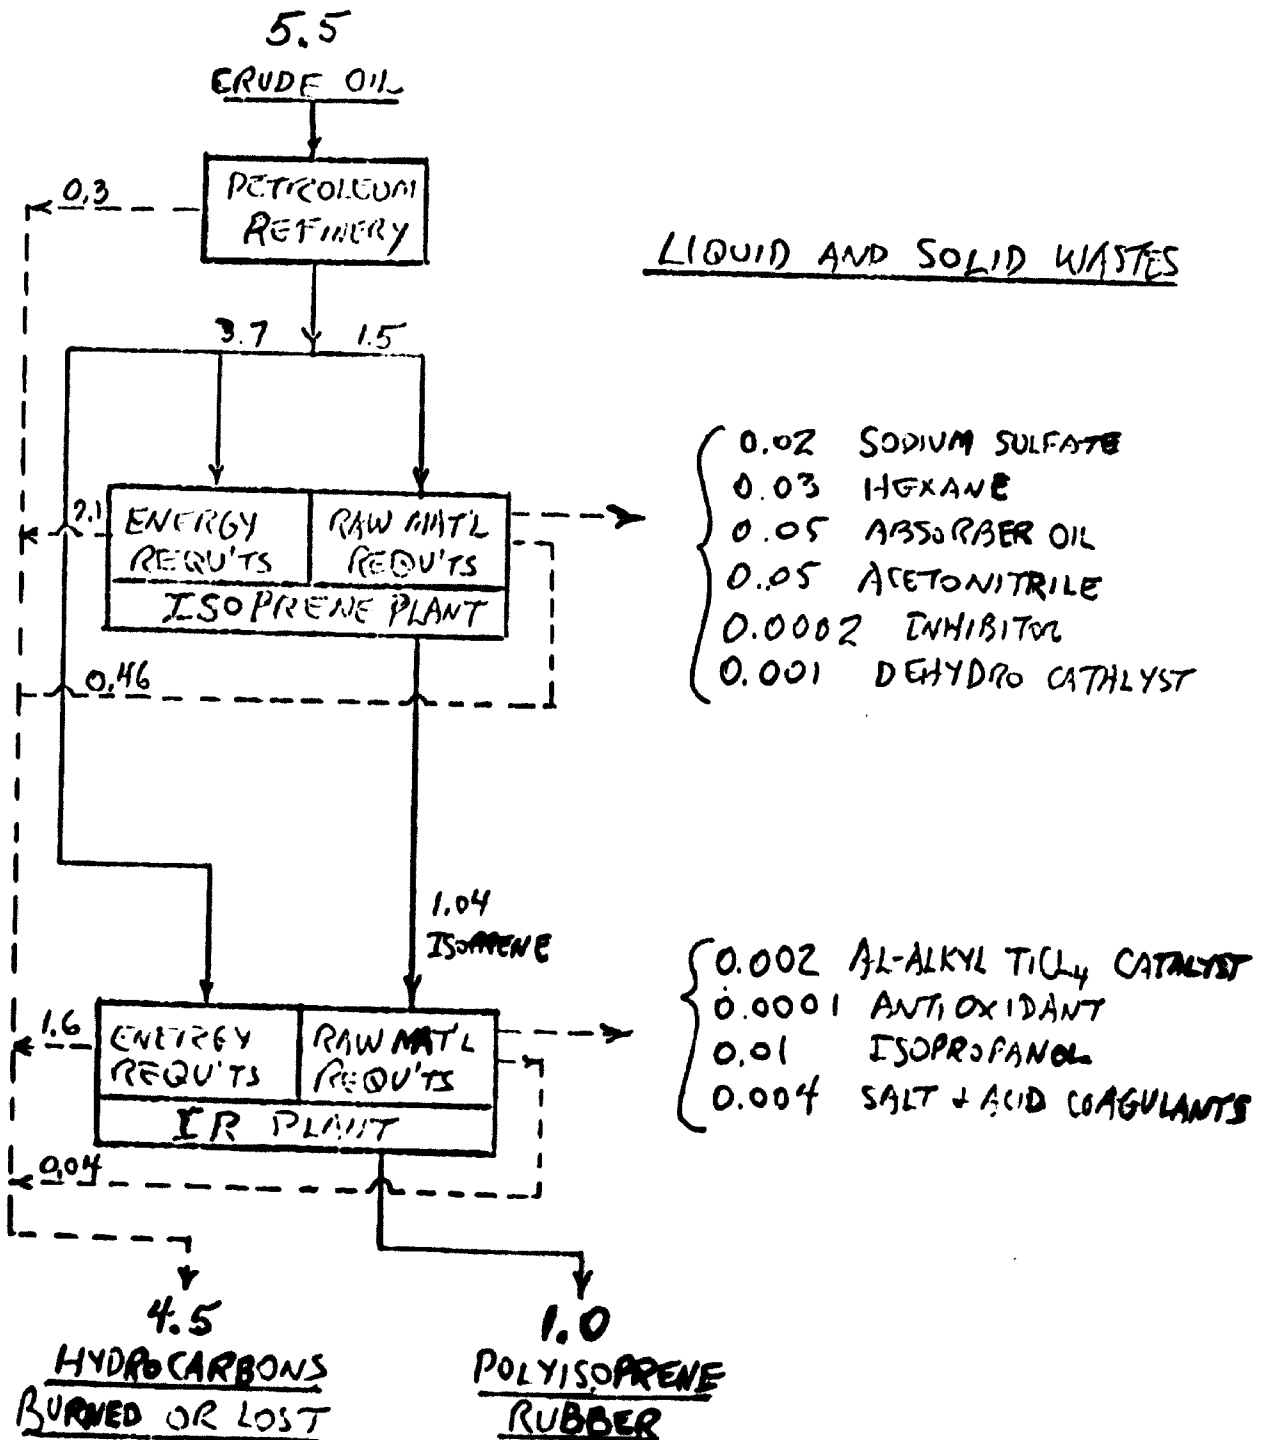 5.5
CRUDE OIL
0.3
PETROLEUM
REFINERY
LIQUID AND SOLID WASTES
3.7
1.5
2.1
ENERGY
REQU'TS
RAW MAT'L
REQU'TS
ISOPRENE PLANT
0.46
0.02 SODIUM SULFATE
0.03 HEXANE
0.05 ABSORBER OIL
0.05 ACETONITRILE
0.0002 INHIBITOR
0.001 DEHYDRO CATALYST
1.04
ISOPRENE
1.6
ENERGY
REQU'TS
RAW MAT'L
REQU'TS
IR PLANT
0.04
0.002 AL-ALKYL TiCL4 CATALYST
0.0001 ANTIOXIDANT
0.01 ISOPROPANOL
0.004 SALT + ACID COAGULANTS
4.5
HYDROCARBONS
BURNED OR LOST
1.0
POLYISOPRENE
RUBBER